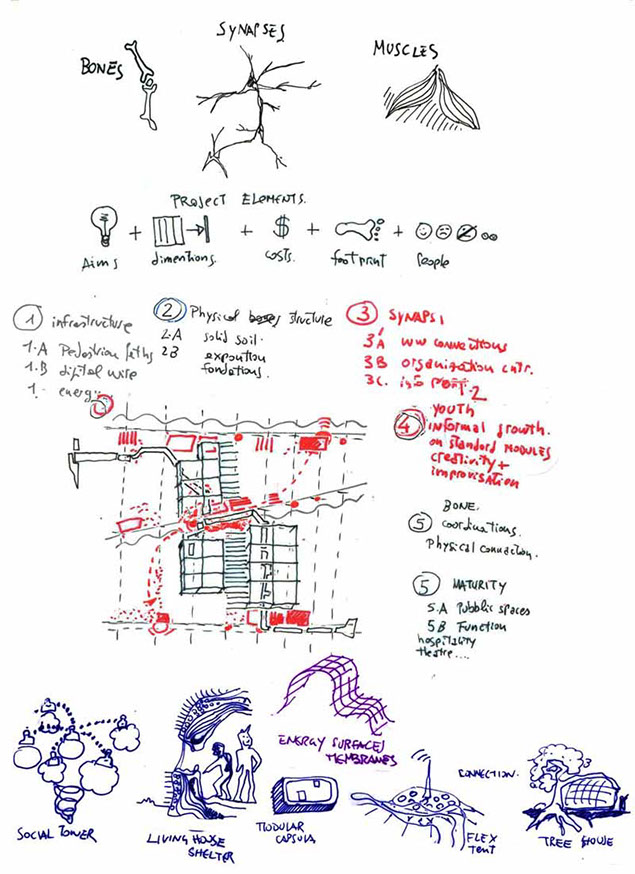 SYNAPSES
BONES
MUSCLES
PROJECT ELEMENTS.
+ + $ + +
Aims
dimentions.
costs.
footprint
People
1 infrastructure
1.A Pedestrian Paths
1.B digital wire
1. energy
2 Physical bones structure
2.A solid soil.
2B exposition
fondations.
3 SYNAPSI
3A WW connections
3B organization cntr.
3C. info POINT.2
3
YOUTH
4 informal growth.
on standard MODULES
creativity +
improvisation
BONE.
5 coordinations.
Physical connection.
5 MATURITY
5.A Pubblic spaces
5B Function
hospitality
theatre....
ENERGY SURFACES
MEMBRANES
CONNECTION.
SOCIAL TOWER
LIVING HOUSE
SHELTER
MODULAR
CAPSULA
FLEX
TENT
TREE HOUSE